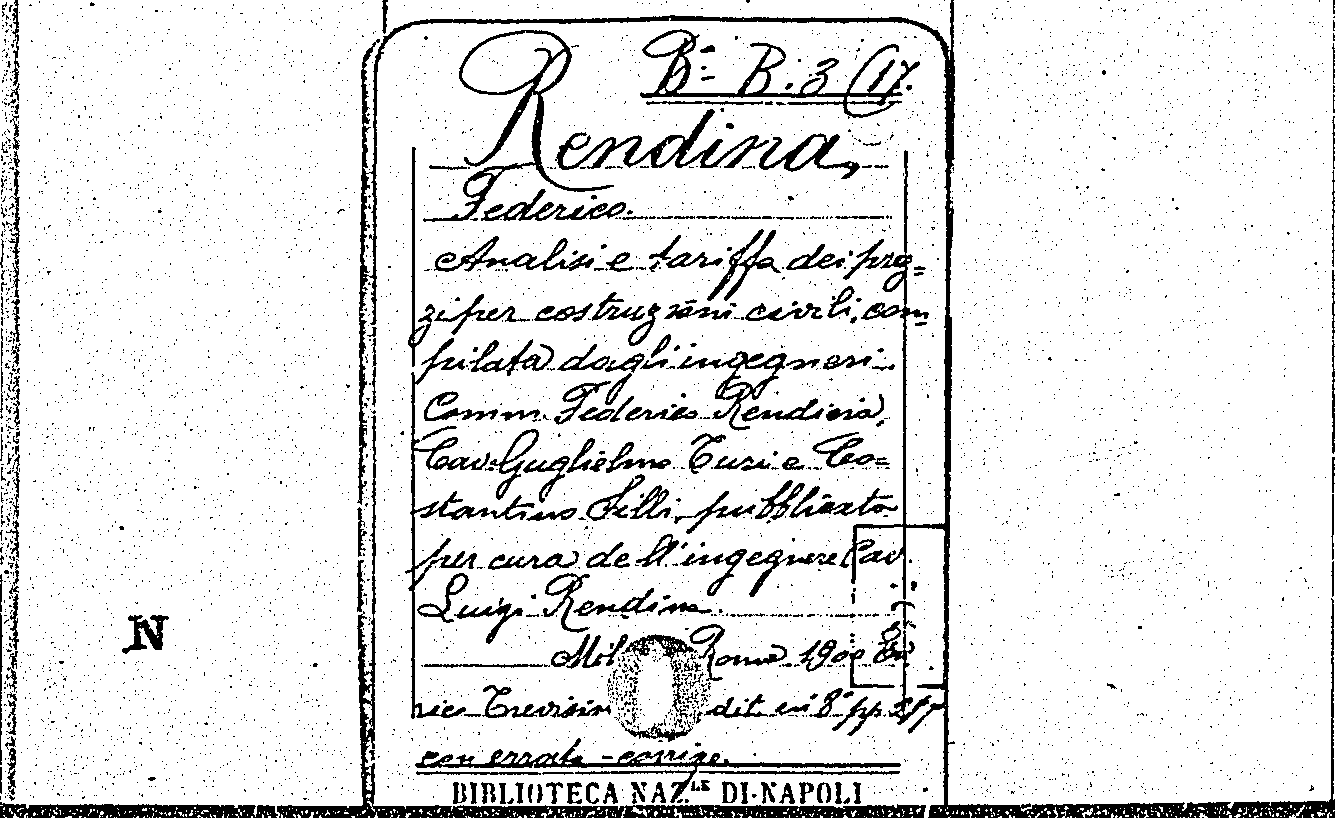 Bª B. 3 (17.
Rendina,
Federico.
Analisi e tariffa dei prez=
zi per costruzioni civili, com=
pilata dagli ingegneri
Comm. Federico Rendina,
Cav. Guglielmo Turi e Co=
stantino Lilli, pubblicata
per cura dell'ingegnere Cav.
Luigi Rendina.
Roma 1900 En
rico Trevisin dit. in 8° pp.
con errata-corrige.
BIBLIOTECA NAZ.LE DI-NAPOLI
N